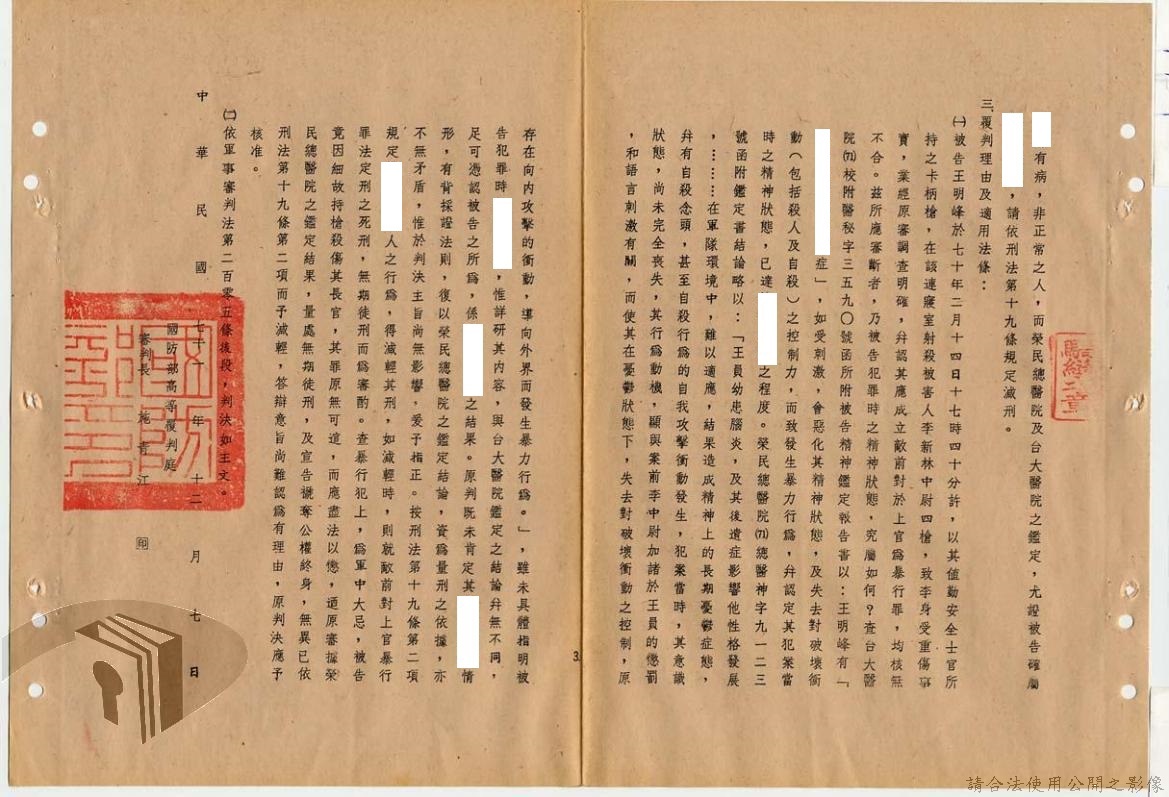 有病，非正常之人，而榮民總醫院及台大醫院之鑑定，尤證被告確屬
，請依刑法第十九條規定減刑。
三、覆判理由及適用法條：
㈠被告王明峰於七十年二月十四日十七時四十分許，以其値勤安全士官所
持之卡柄槍，在該連寢室射殺被害人李新林中尉四槍，致李身受重傷事
實，業經原審調查明確，幷認其應成立敵前對於上官爲暴行罪，均核無
不合。茲所應審斷者，乃被告犯罪時之精神狀態，究屬如何？查台大醫
院(71)校附醫秘字三五九〇號函所附被告精神鑑定報告書以：王明峰有「
症」，如受刺激，會惡化其精神狀態，及失去對破壞衝
動（包括殺人及自殺）之控制力，而致發生暴力行爲，幷認定其犯案當
時之精神狀態，已達 之程度。榮民總醫院(71)總醫神字九一二三
號函附鑑定書結論略以：「王員幼患腦炎，及其後遺症影響他性格發展
，………在軍隊環境中，難以適應，結果造成精神上的長期憂鬱症態，
幷有自殺念頭，甚至自殺行爲的自我攻擊衝動發生，犯案當時，其意識
狀態，尚未完全喪失，其行爲動機，顯與案前李中尉加諸於王員的懲罰
，和語言刺激有關，而使其在憂鬱狀態下，失去對破壞衝動之控制，原
3.
存在向内攻擊的衝動，導向外界而發生暴力行爲。」，雖未具體指明被
告犯罪時 ，惟詳研其內容，與台大醫院鑑定之結論幷無不同，
足可憑認被告之所爲，係 之結果。原判既未肯定其 情
形，有背採證法則，復以榮民總醫院之鑑定結論，資爲量刑之依據，亦
不無矛盾，惟於判決主旨尚無影響，爰予指正。按刑法第十九條第二項
規定 人之行爲，得減輕其刑，如減輕時，則就敵前對上官暴行
罪法定刑之死刑，無期徒刑而爲審酌。查暴行犯上，爲軍中大忌，被告
竟因細故持槍殺傷其長官，其罪原無可逭，而應盡法以懲，迺原審據榮
民總醫院之鑑定結果，量處無期徒刑，及宣告褫奪公權終身，無異已依
刑法第十九條第二項而予減輕，答辯意旨尚難認爲有理由，原判決應予
核准。
㈡依軍事審判法第二百零五條後段，判決如主文。
中華民國七十一年十二月七日
國防部高等覆判庭
審判長 施青江 印
請合法使用公開之影像